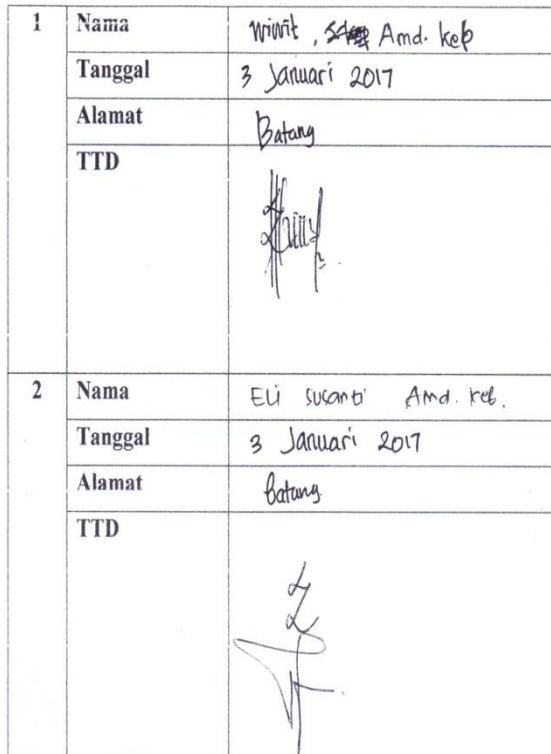 1 Nama Wiwit, Amd. kep
Tanggal 3 Januari 2017
Alamat Batang
TTD
2 Nama Eli Susanti Amd. keb.
Tanggal 3 Januari 2017
Alamat Batang
TTD